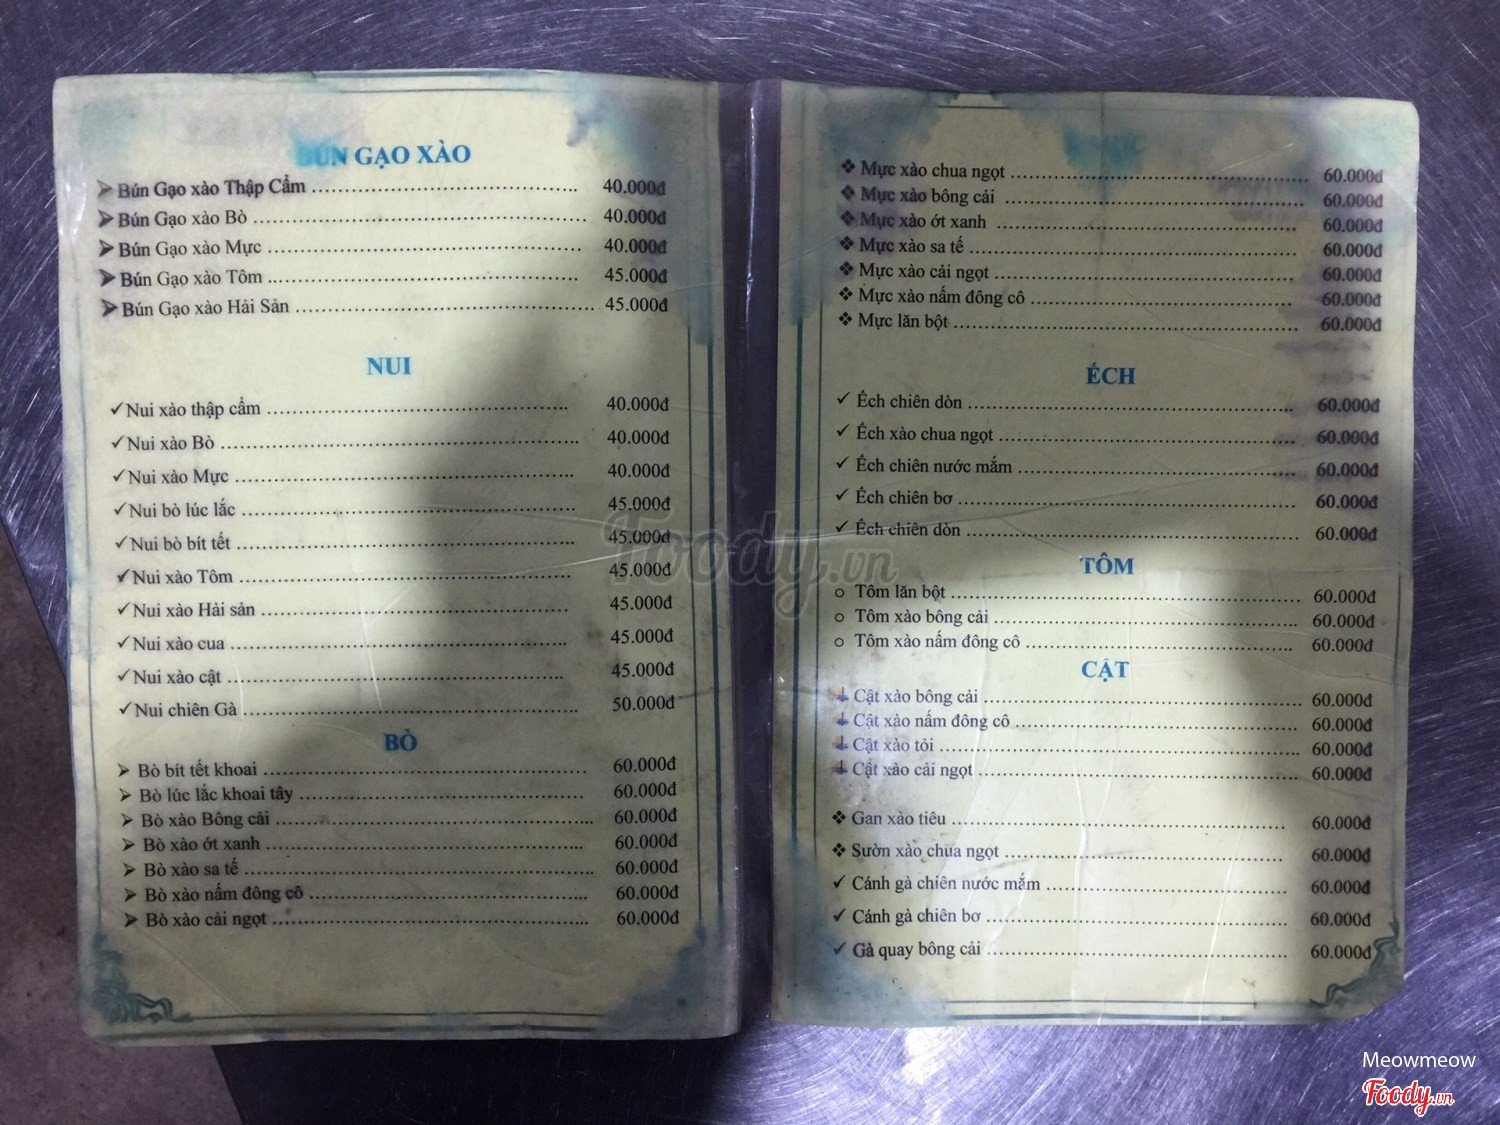 BÚN GẠO XÀO
Bún Gạo xào Thập Cẩm .......... 40.000đ
Bún Gạo xào Bò .......... 40.000đ
Bún Gạo xào Mực .......... 40.000đ
Bún Gạo xào Tôm .......... 45.000đ
Bún Gạo xào Hải Sản .......... 45.000đ
NUI
Nui xào thập cẩm .......... 40.000đ
Nui xào Bò .......... 40.000đ
Nui xào Mực .......... 40.000đ
Nui bò lúc lắc .......... 45.000đ
Nui bò bít tết .......... 45.000đ
Nui xào Tôm .......... 45.000đ
Nui xào Hải sản .......... 45.000đ
Nui xào cua .......... 45.000đ
Nui xào cật .......... 45.000đ
Nui chiên Gà .......... 50.000đ
BÒ
Bò bít tết khoai .......... 60.000đ
Bò lúc lắc khoai tây .......... 60.000đ
Bò xào Bông cải .......... 60.000đ
Bò xào ớt xanh .......... 60.000đ
Bò xào sa tế .......... 60.000đ
Bò xào nấm đông cô .......... 60.000đ
Bò xào cải ngọt .......... 60.000đ
Mực xào chua ngọt .......... 60.000đ
Mực xào bông cải .......... 60.000đ
Mực xào ớt xanh .......... 60.000đ
Mực xào sa tế .......... 60.000đ
Mực xào cải ngọt .......... 60.000đ
Mực xào nấm đông cô .......... 60.000đ
Mực lăn bột .......... 60.000đ
ẾCH
Ếch chiên dòn .......... 60.000đ
Ếch xào chua ngọt .......... 60.000đ
Ếch chiên nước mắm .......... 60.000đ
Ếch chiên bơ .......... 60.000đ
Ếch chiên dòn .......... 60.000đ
TÔM
Tôm lăn bột .......... 60.000đ
Tôm xào bông cải .......... 60.000đ
Tôm xào nấm đông cô .......... 60.000đ
CẬT
Cật xào bông cải .......... 60.000đ
Cật xào nấm đông cô .......... 60.000đ
Cật xào tỏi .......... 60.000đ
Cật xào cải ngọt .......... 60.000đ
Gan xào tiêu .......... 60.000đ
Sườn xào chua ngọt .......... 60.000đ
Cánh gà chiên nước mắm .......... 60.000đ
Cánh gà chiên bơ .......... 60.000đ
Gà quay bông cải .......... 60.000đ
Foody.vn
Meowmeow
Foody.vn